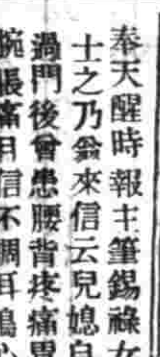 奉天醒時報主筆錫祿女
士之乃翁來信云兒媳自
過門後曾患腰背疼痛胃
脘脹滿月信不調耳鳴心